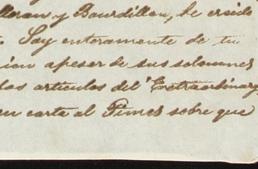 lloran y Bourdillon, he creido
. Soy enteramente de tu
ion apesar de sus solemnes
los articulos del Extraordinary
en carta al Times sobre que